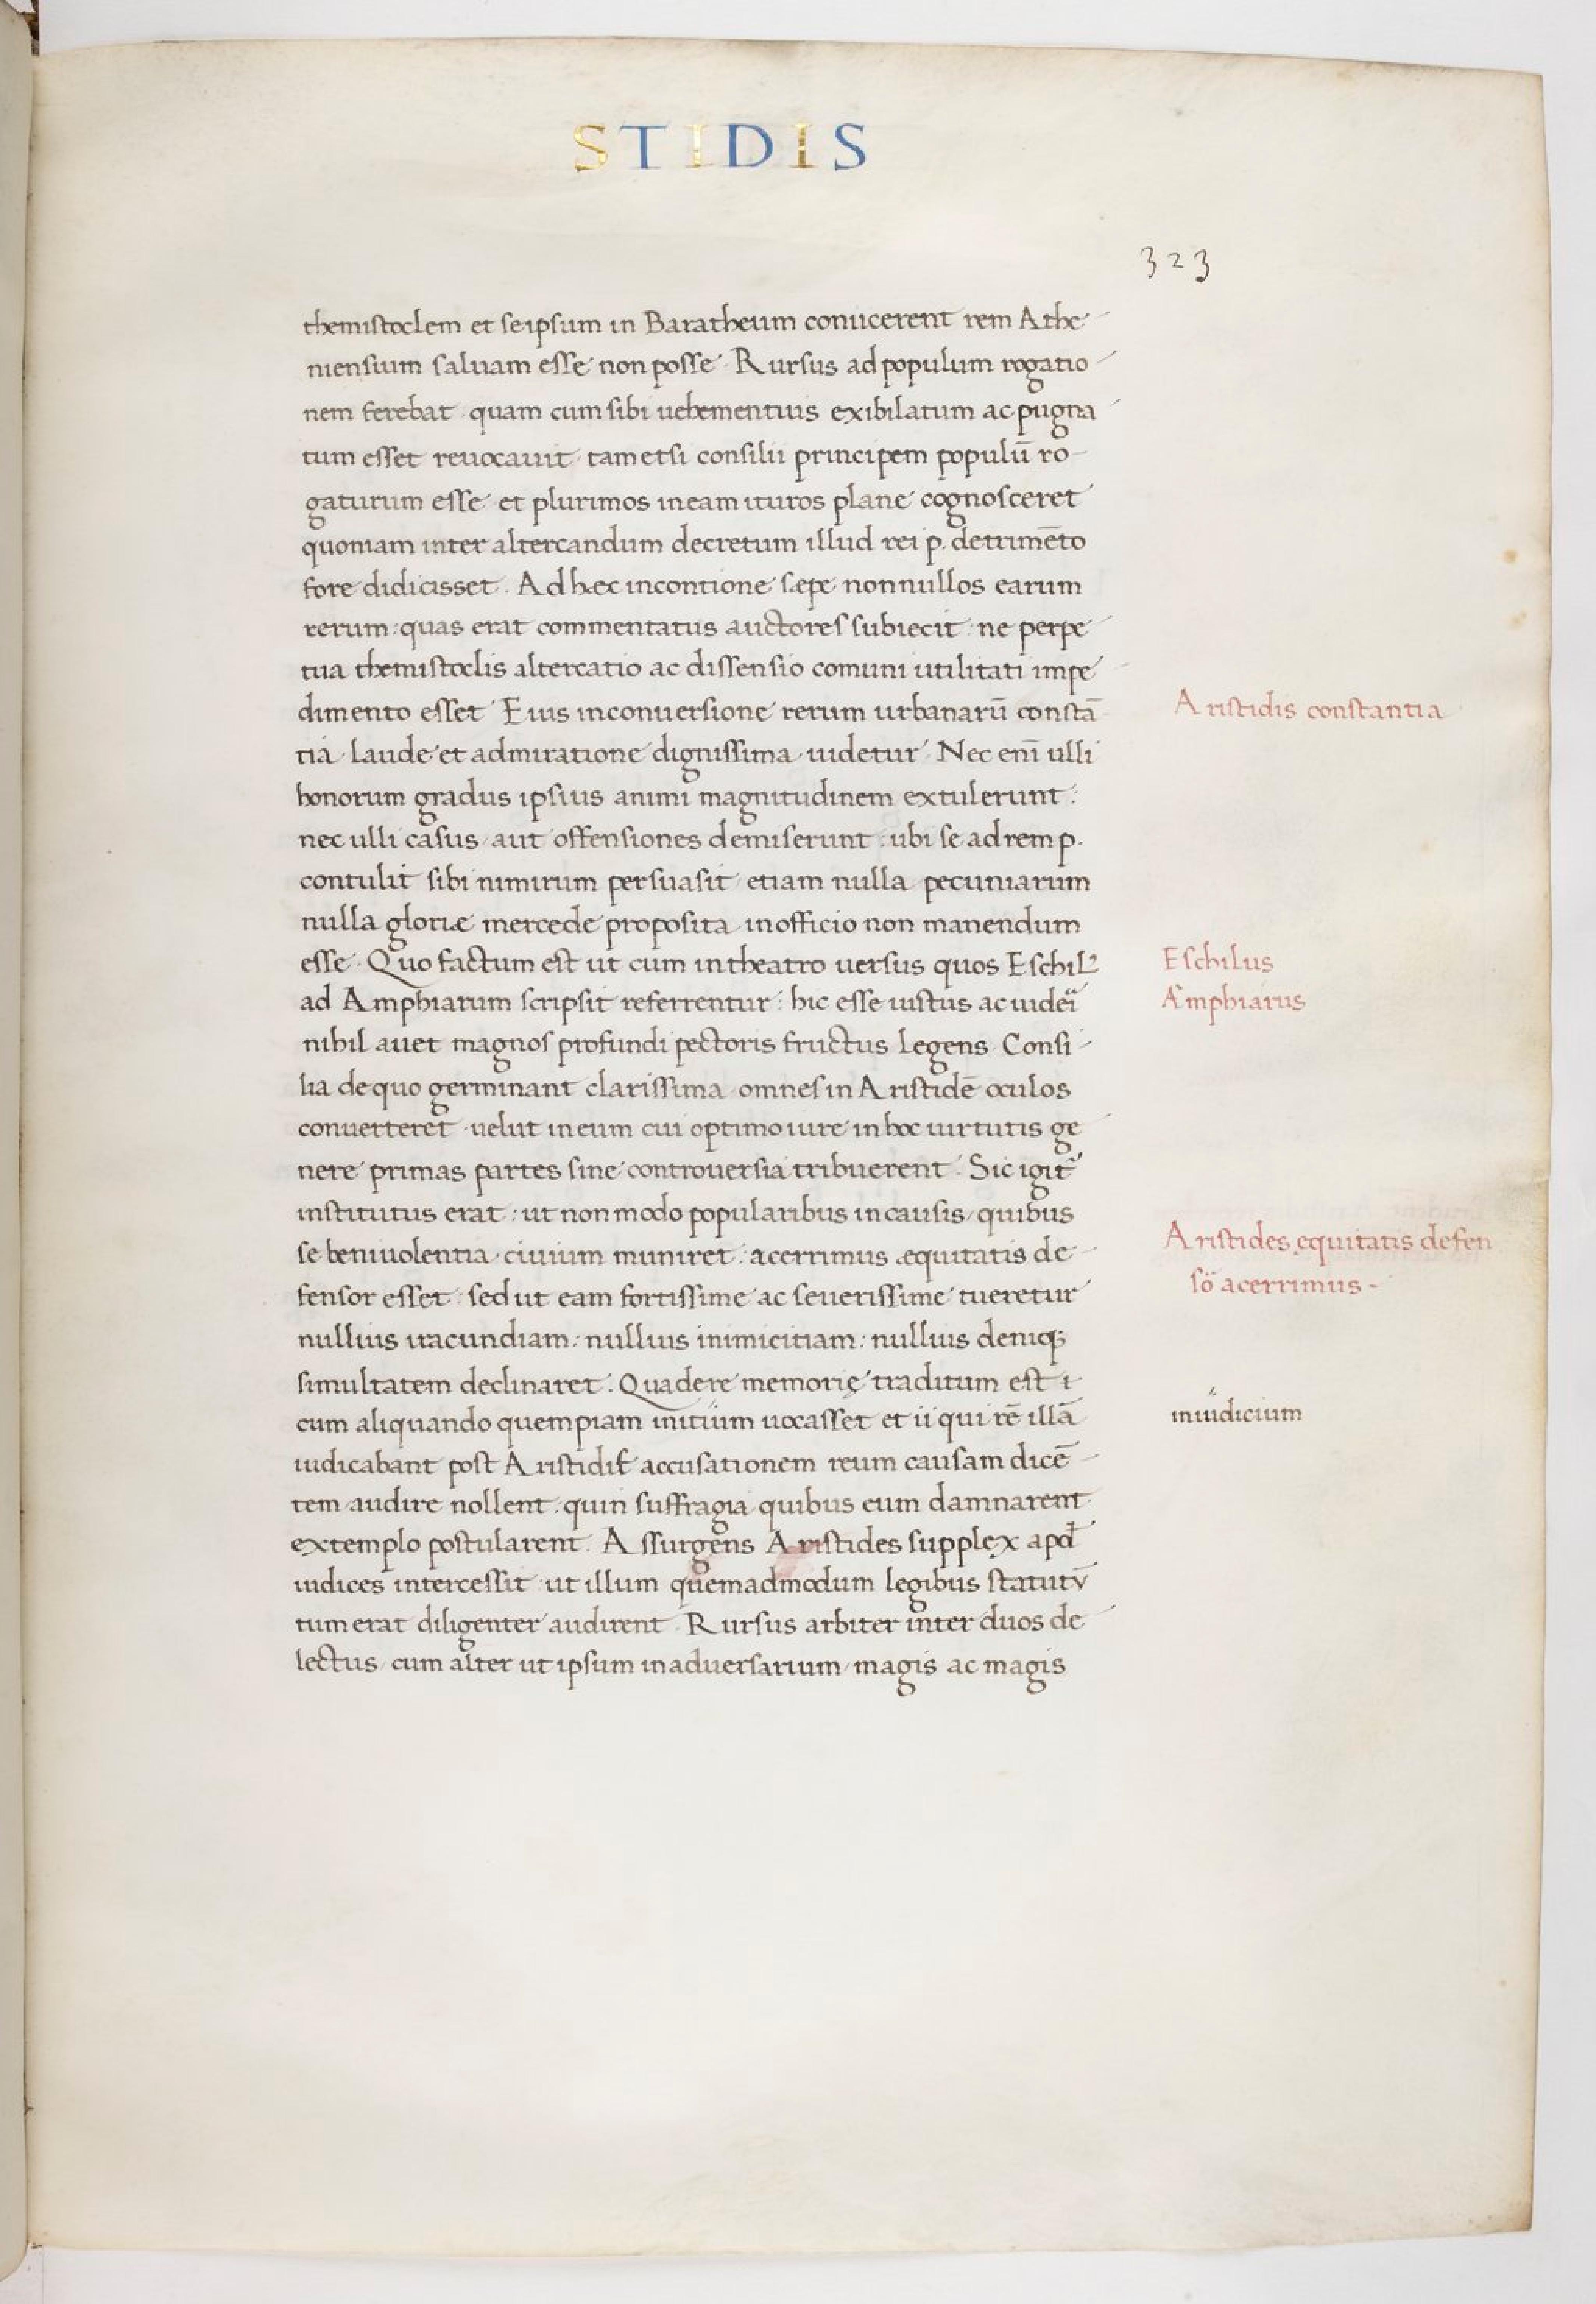 STIDIS
323
themistoclem et seipsum in Baratheum coniicerent rem Athe-
niensium saluam esse non posse. Rursus ad populum rogatio-
nem ferebat. quam cum sibi uehementius exibilatum ac pugna-
tum esset reuocauit. tametsi consilii principem populū ro-
gaturum esse et plurimos in eam ituros plane cognosceret
quoniam inter altercandum decretum illud rei p. detrimēto
fore didicisset. Ad hæc in contione sæpe nonnullos earum
rerum: quas erat commentatus auctores subiecit: ne perpe-
tua themistoclis altercatio ac dissensio comuni utilitati impe-
dimento esset. Eius in conuersione rerum urbanarū constā-
tia. Laude et admiratione dignissima uidetur. Nec enī ulli
honorum gradus ipsius animi magnitudinem extulerunt:
nec ulli casus aut offensiones demiserunt: ubi se ad rem p.
contulit sibi nimirum persuasit etiam nulla pecuniarum
nulla gloriæ mercede proposita in officio non manendum
esse. Quo factum est ut cum in theatro uersus quos Eschil᷒
ad Amphiarum scripsit referrentur: hic esse iustus ac uideri
nihil auet magnos profundi pectoris fructus Legens. Consi-
lia de quo germinant clarissima omnes in Aristidē oculos
conuerteret. uelut in eum cui optimo iure in hoc uirtutis ge-
nere primas partes sine controuersia tribuerent. Sic igit᷑
institutus erat: ut non modo popularibus in causis/ quibus
se beniuolentia ciuium muniret: acerrimus æquitatis de-
fensor esset: sed ut eam fortissime ac seuerissime tueretur
nullius iracundiam: nullius inimicitiam: nullius deniq;
simultatem declinaret. Qua de re memorię traditum est
cum aliquando quempiam uocasset et ii qui rē illā
iudicabant post Aristidis accusationem reum causam dicē-
tem audire nollent: quin suffragia quibus eum damnarent
extemplo postularent. Assurgens Aristides supplex apd̄
iudices intercessit ut illum quemadmodum legibus statutū
tum erat diligenter audirent. Rursus arbiter inter duos de-
lectus/ cum alter ut ipsum in aduersarium/ magis ac magis
Aristidis constantia
Eschilus
Amphiarus
Aristides equitatis defen
sor acerrimus-
in iudicium